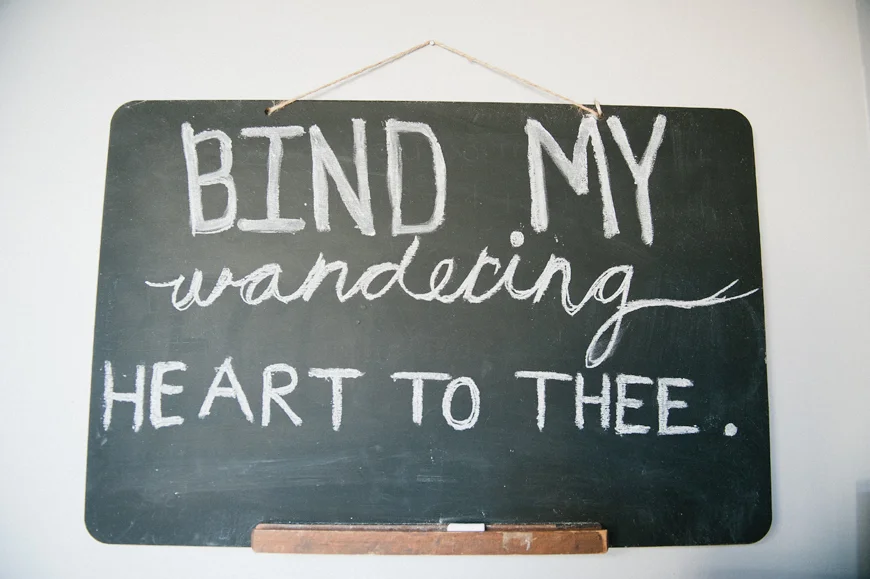 BIND MY
wandering
HEART TO THEE.